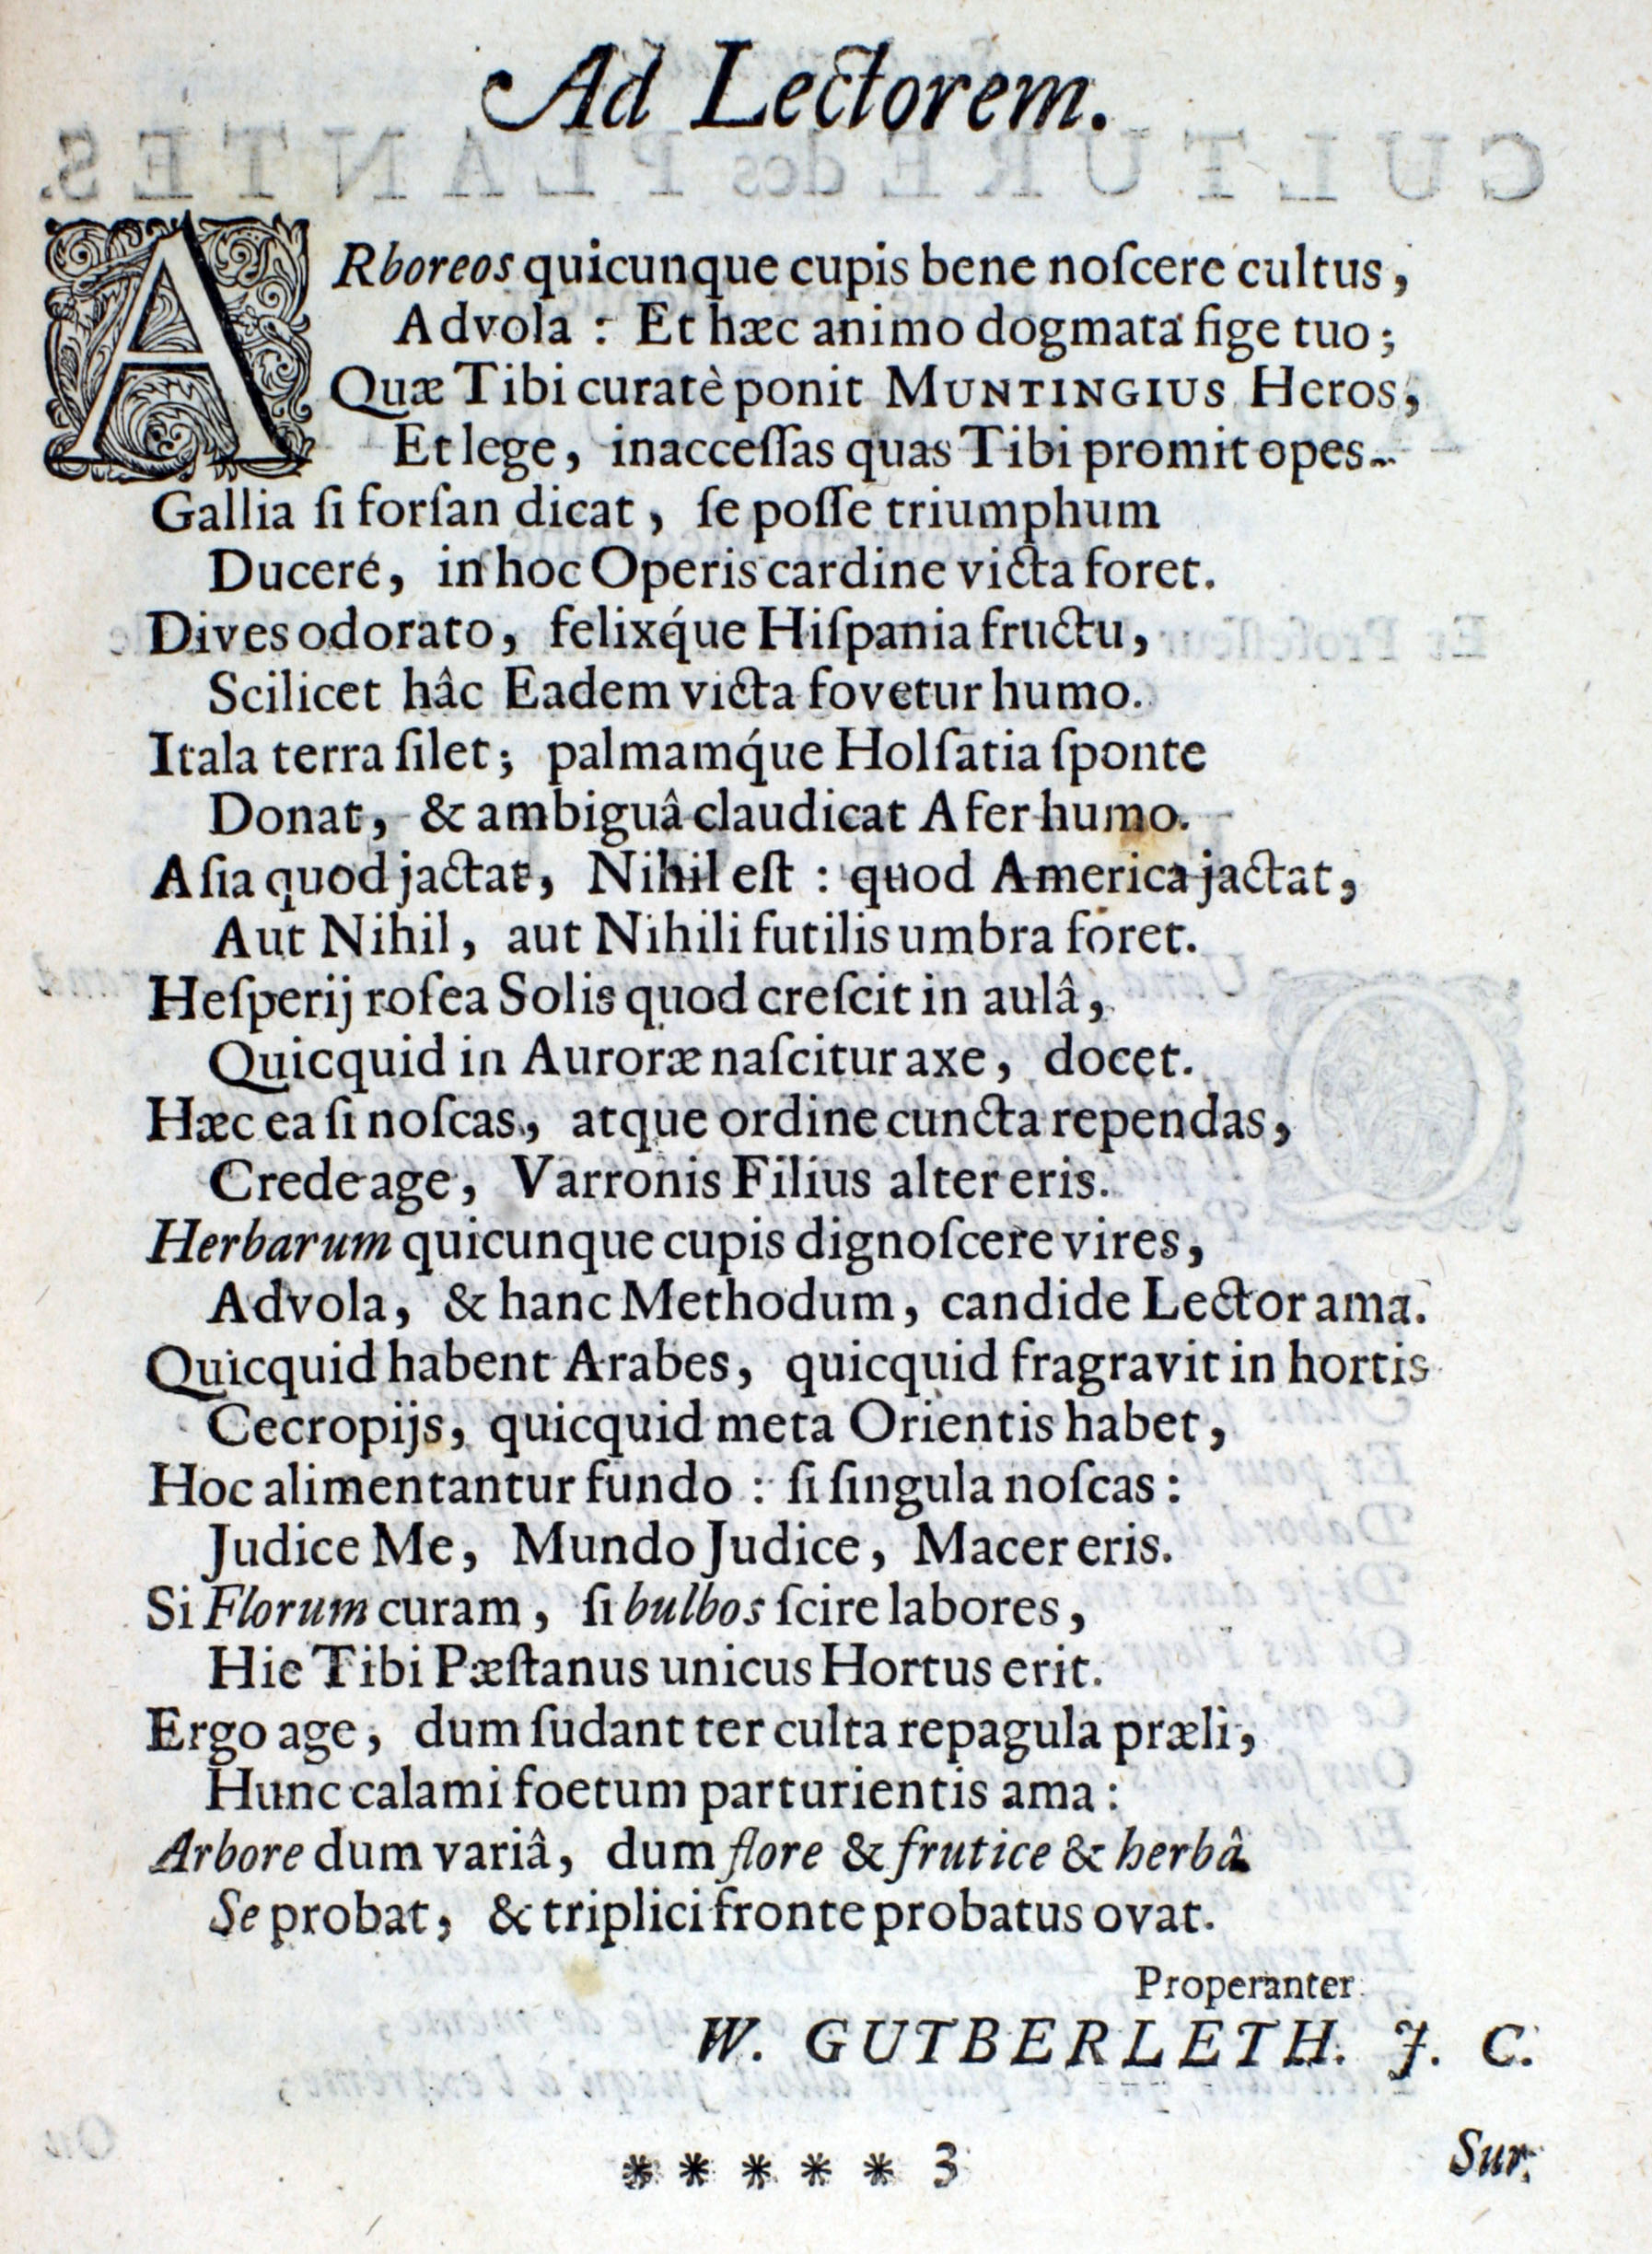 Ad Lectorem.
ARboreos quicunque cupis bene noſcere cultus,
Advola : Et hæc animo dogmata fige tuo;
Quæ Tibi curatè ponit MUNTINGIUS Heros,
Et lege, inacceſſas quas Tibi promit opes.
Gallia ſi forſan dicat, ſe poſſe triumphum
Ducere, in hoc Operis cardine victa foret.
Dives odorato, felixq́ue Hiſpania fructu,
Scilicet hâc Eadem victa fovetur humo.
Itala terra ſilet; palmamq́ue Holſatia ſponte
Donat, & ambiguâ claudicat Afer humo.
Aſia quod jactat, Nihil eſt : quod America jactat,
Aut Nihil, aut Nihili futilis umbra foret.
Heſperij roſea Solis quod creſcit in aulâ,
Quicquid in Auroræ naſcitur axe, docet.
Hæc ea ſi noſcas, atque ordine cuncta rependas,
Crede age, Varronis Filius alter eris.
Herbarum quicunque cupis dignoſcere vires,
Advola, & hanc Methodum, candide Lector ama.
Quicquid habent Arabes, quicquid fragravit in hortis
Cecropijs, quicquid meta Orientis habet,
Hoc alimentantur fundo : ſi ſingula noſcas :
Judice Me, Mundo Judice, Macer eris.
Si Florum curam, ſi bulbos ſcire labores,
Hic Tibi Pæſtanus unicus Hortus erit.
Ergo age, dum ſudant ter culta repagula præli,
Hunc calami foetum parturientis ama :
Arbore dum variâ, dum flore & frutice & herbâ
Se probat, & triplici fronte probatus ovat.
Properanter
W. GUTBERLETH. J. C.
* * * * * 3
Sur.